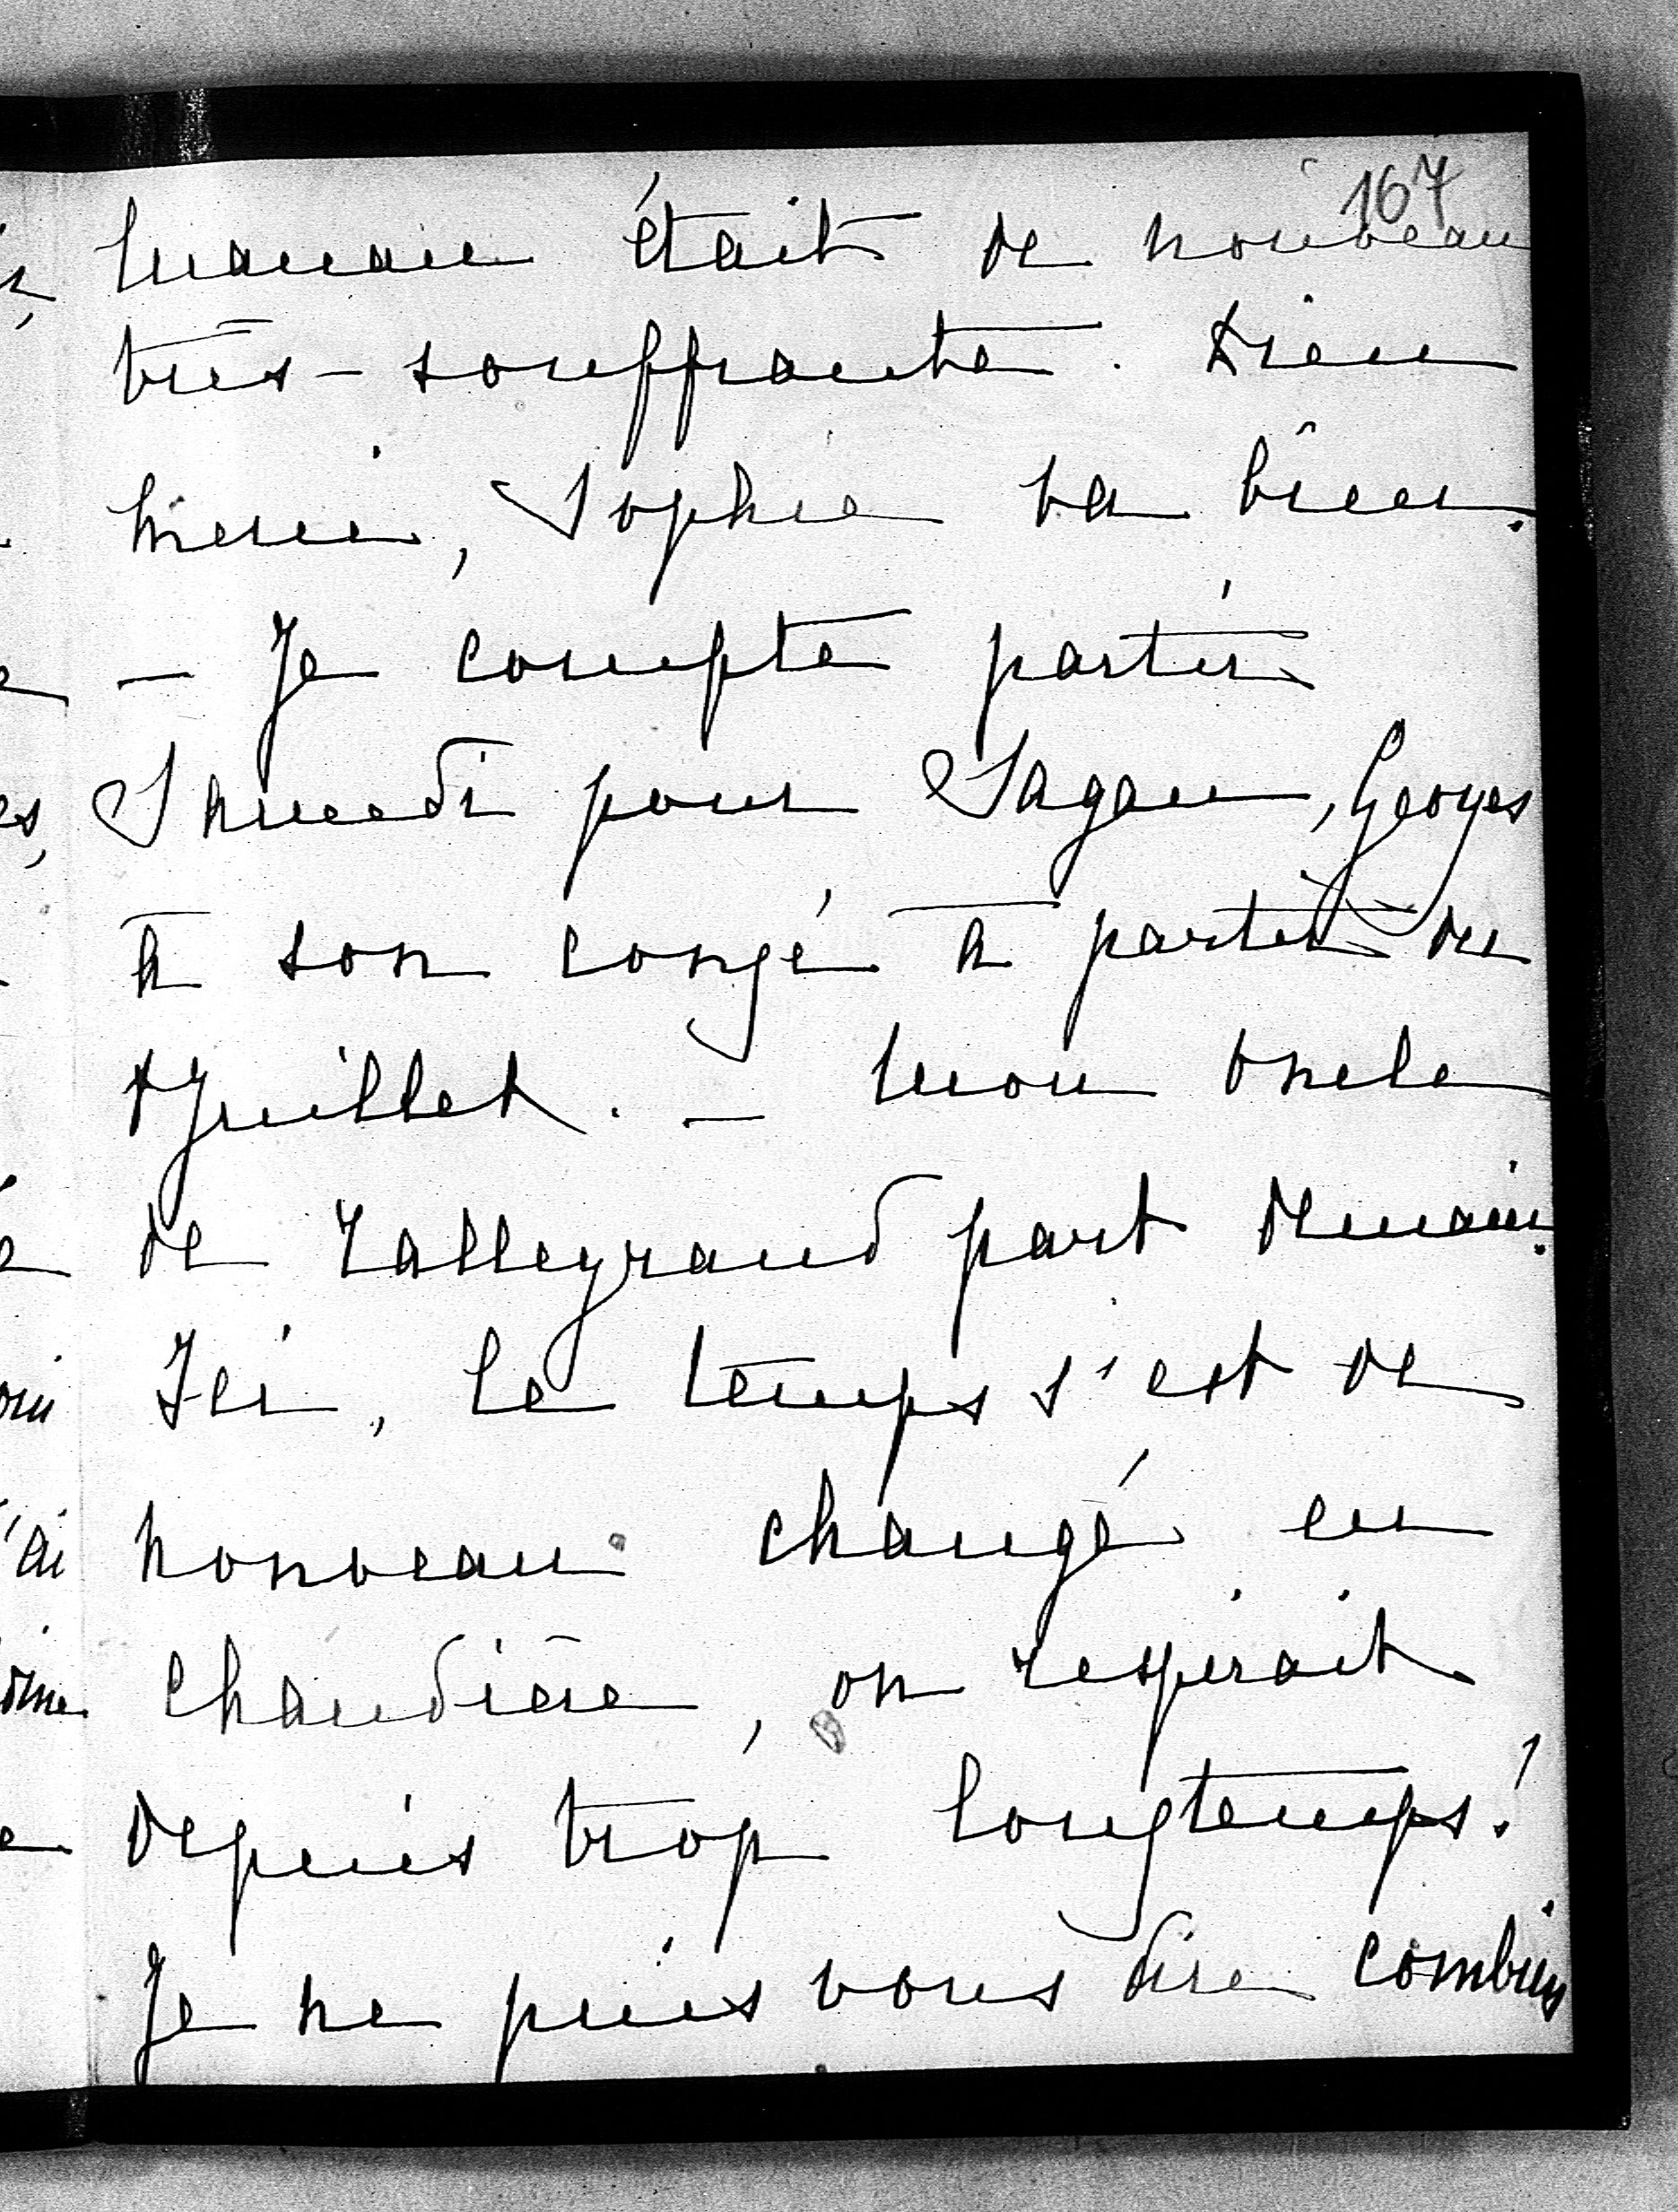 167
maman était de nouveau
très-souffrante. Dieu
merci, Sophie va bien.
— Je compte partir
Samedi pour Sagan, Georges
a son congé à partir du
Juillet. — Mon oncle
de Talleyrand part demain.
Ici, le temps s'est de
nouveau changé en
chaudière, on respirait
depuis trop longtemps!
Je ne puis vous dire combien